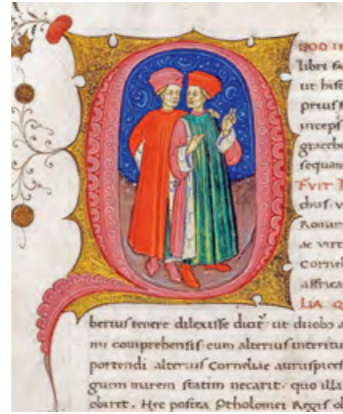 QOO IN
libri
ut hist
prius
incep
gracch
sequan
FVIT T
chus: v
Romani
ac virt
Corneli
affrica
LIA Q
berius tenere dilexisse dicit᷑ ut duobo a
mi comprehensis cum alterius interitu
portendi alterius Corneliae auruspices
guem marem statim necarit. quo illa
obiret. Hec postea Ptholomei Regis